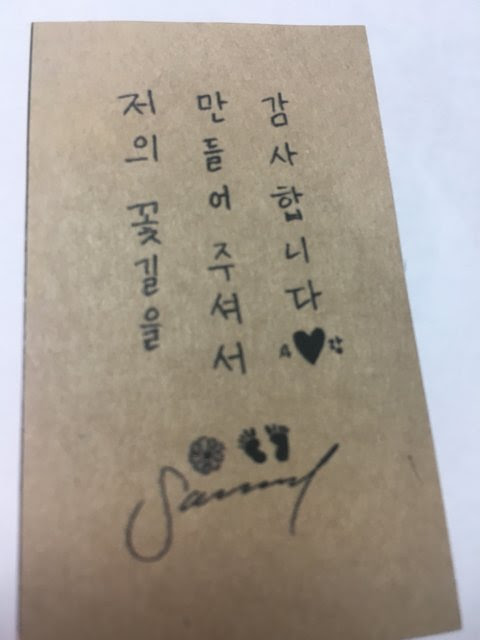 저의 꽃길을
만들어 주셔서
감사합니다
Samuel